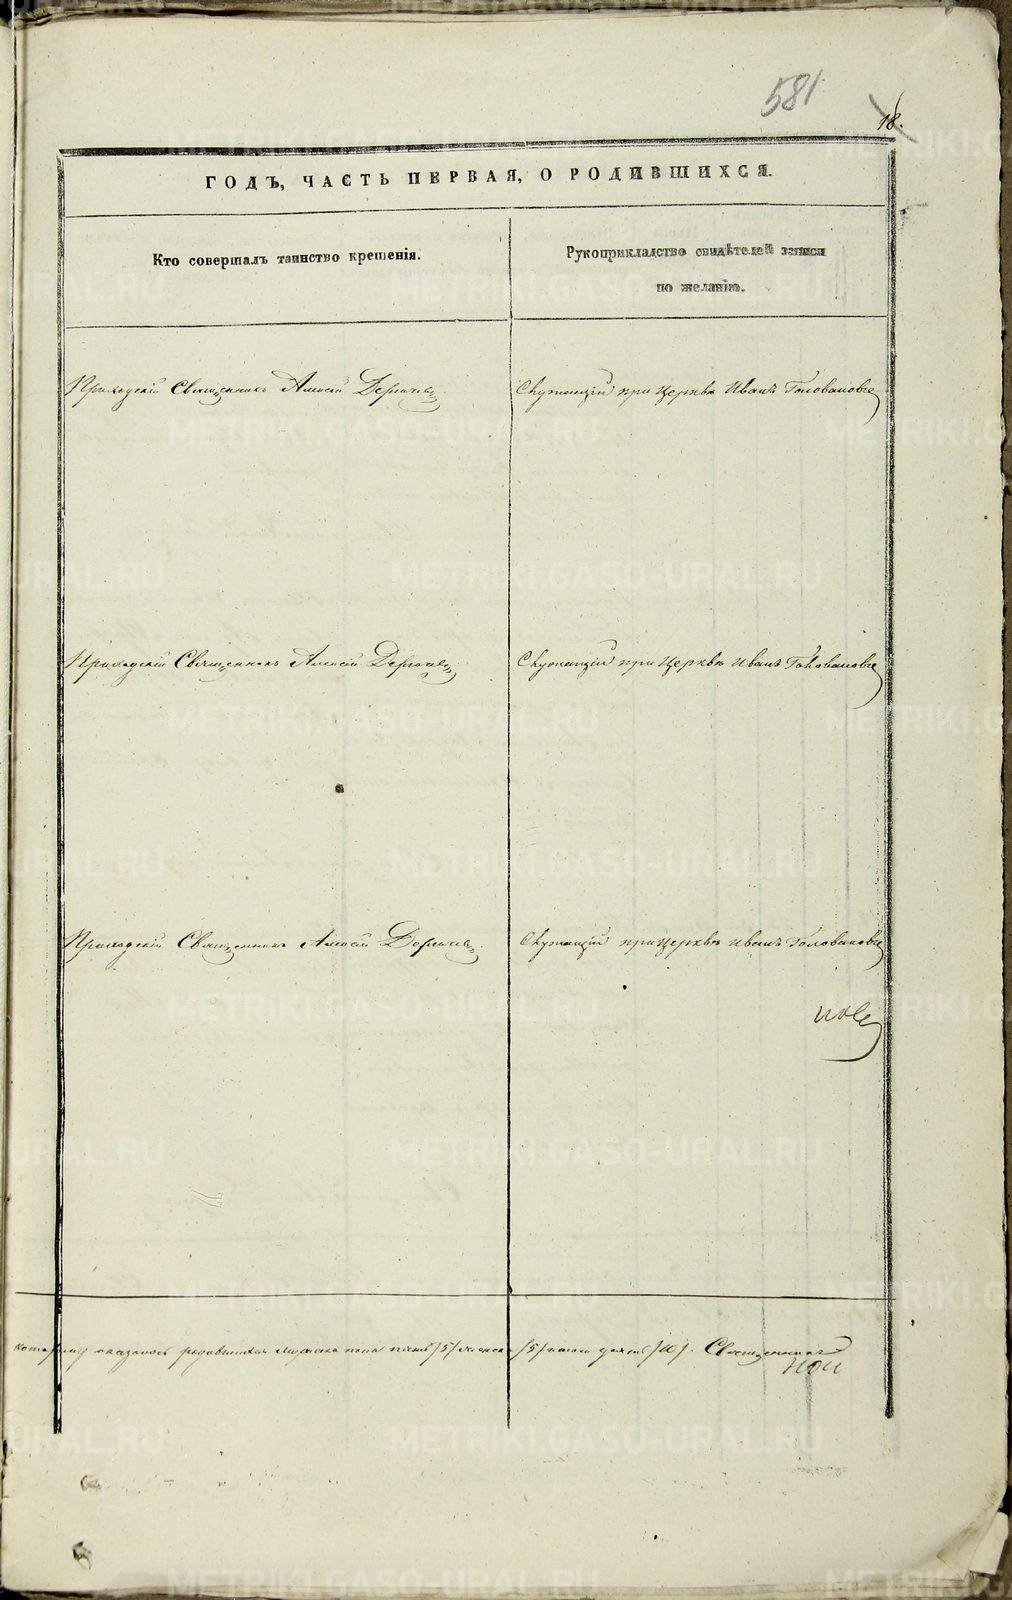 581
18.
ГОДЪ, ЧАСТЬ ПЕРВАЯ, О РОДИВШИХСЯ.
Кто совершалъ таинство крещенія.
Рукоприкладство свидѣтелей записи
по желанію.
Приходскій Священникъ Алексій
Служащій при Церквѣ Иванъ Головановъ
Приходскій Священникъ Алексій
Служащій при Церквѣ Иванъ Головановъ
Приходскій Священникъ Алексій
Служащій при Церквѣ Иванъ Головановъ
оказалось родившихся мужеска пола пять /5/ женска /5/ всего десять /10/. Священникъ
METRIKI.GASO-URAL.RU